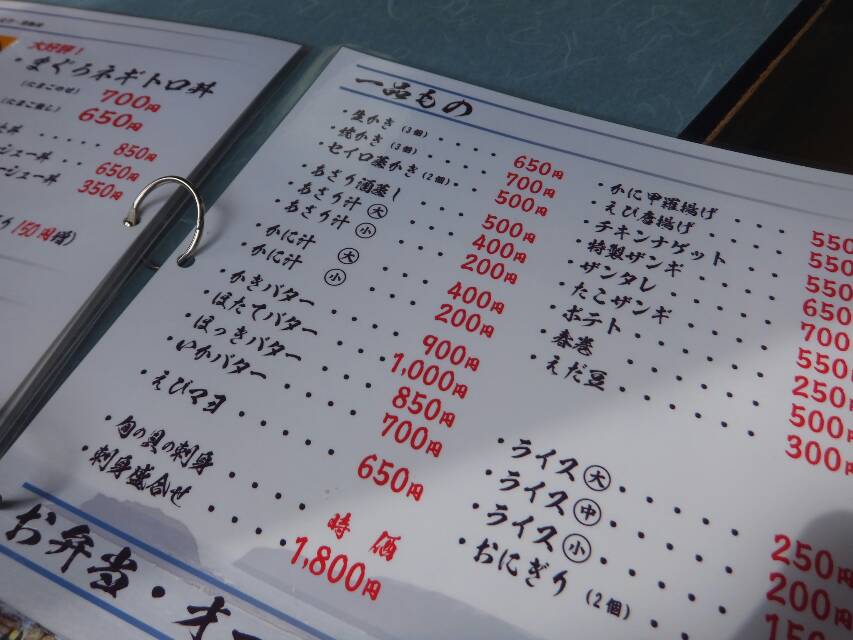 大好評！
・まぐろネギトロ丼
700円
650円
850円
650円
350円
150円増）
一品もの
・生かき（3個）・・・・650円
・焼かき（3個）・・・・700円
・セイロ蒸かき（2個）・・500円
・あさり酒蒸し・・・・500円
・あさり汁 大・・・・400円
・あさり汁 小・・・・200円
・かに汁 大・・・・400円
・かに汁 小・・・・200円
・かきバター・・・・900円
・ほたてバター・・・・1,000円
・ほっきバター・・・・850円
・いかバター・・・・700円
・えびマヨ・・・・650円
・旬の貝の刺身・・・・時価
・刺身盛合せ・・・・1,800円
・かに甲羅揚げ・・・・550
・えび唐揚げ・・・・550
・チキンナゲット・・・・550
・特製ザンギ・・・・650
・ザンタレ・・・・700
・たこザンギ・・・・550円
・ポテト・・・・250円
・春巻・・・・500円
・えだ豆・・・・300円
・ライス 大・・・・250円
・ライス 中・・・・200円
・ライス 小・・・・
・おにぎり（2個）・・・・
お弁当・オ